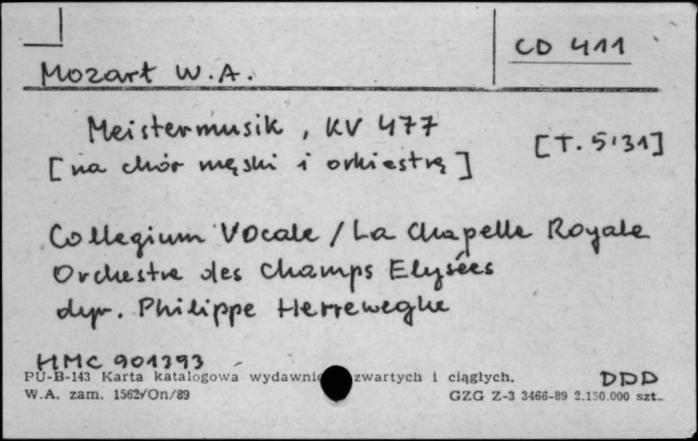 CD 411
Mozart W.A.
Meistermusik, KV 477
[T. 5'31]
[na chór męski i orkiestrę]
Collegium Vocale / La Chapelle Royale
Orchestre des Champs Elysées
dyr. Philippe Herreweghe
HMC 901393
DDD
PU-B-143 Karta katalogowa wydawnic zwartych i ciągłych.
W.A. zam. 1562/On/89 GZG Z-3 3466-89 2.150.000 szt.